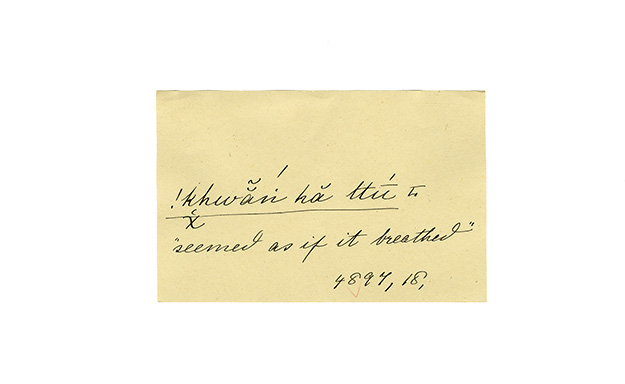 !k̯hwẵń hă ttú ㄴ
"seemed as if it breathed"
4897, 18,